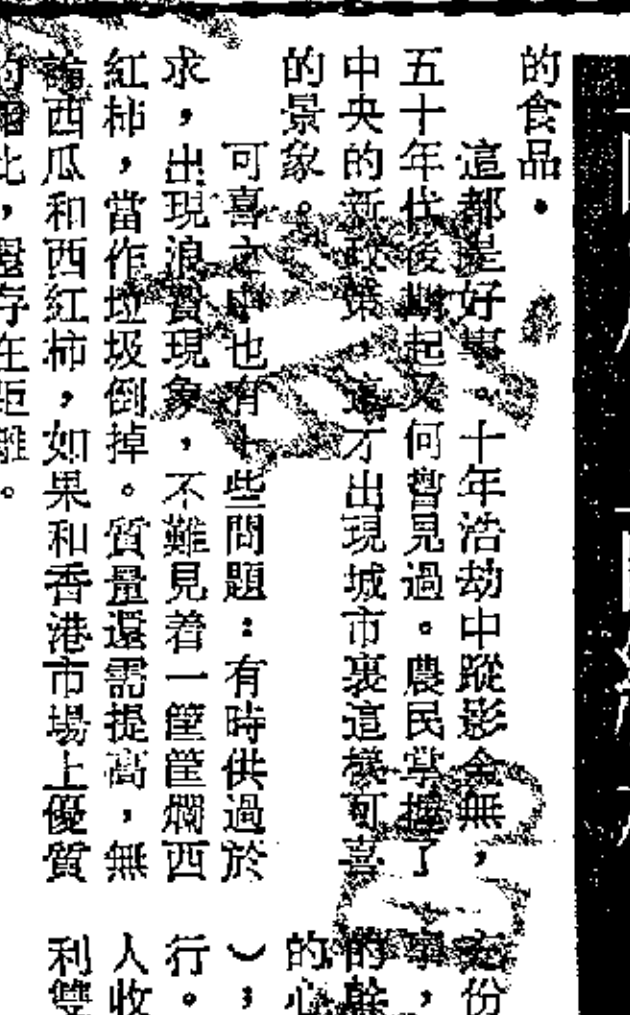 的食品。
這都是好事。十年浩劫中蹤影全無，
五十年代後期起又何曾見過。農民掌握了
中央的新政策，這才出現城市裏這樣可喜
的景象。
可喜之中也有一些問題：有時供過於
求，出現浪費現象，不難見着一筐筐爛西
紅柿，當作垃圾倒掉。質量還需提高，無
論西瓜和西紅柿，如果和香港市場上優質
的相比，還存在距離。
份
的幹
的心
）；
行。
人收
利雙